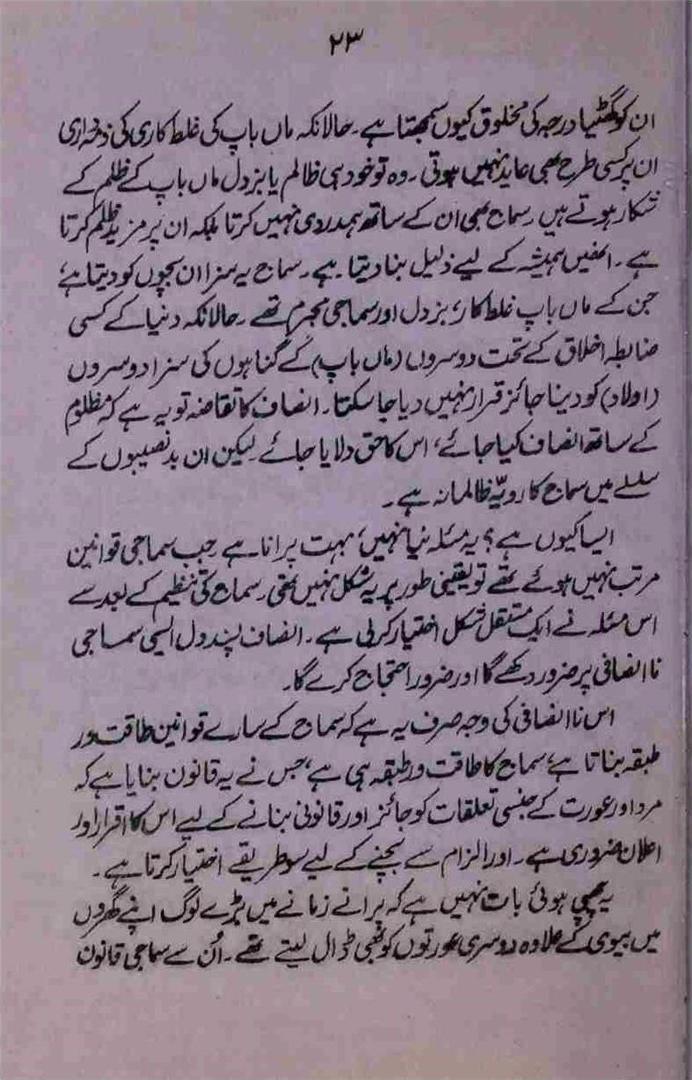 ۲۳
ان کو گھٹیا درجہ کی مخلوق کیوں سمجھتا ہے۔ حالانکہ ماں باپ کی غلط کاری کی ذمہ داری
ان پر کسی طرح بھی عاید نہیں ہوتی۔ وہ تو خود ہی ظالم یا بزدل ماں باپ کے ظلم کے
شکار ہوتے ہیں۔ سماج بھی ان کے ساتھ ہمدردی نہیں کرتا بلکہ ان پر مزید ظلم کرتا
ہے۔ انھیں ہمیشہ کے لیے ذلیل بنا دیتا ہے۔ سماج یہ سزا ان بچوں کو دیتا ہے،
جن کے ماں باپ غلط کار، بزدل اور سماجی مجرم تھے۔ حالانکہ دنیا کے کسی
ضابطہ اخلاق کے تحت دوسروں (ماں باپ) کے گناہوں کی سزا دوسروں
(اولاد) کو دینا جائز قرار نہیں دیا جا سکتا۔ انصاف کا تقاضہ تو یہ ہے کہ مظلوم
کے ساتھ انصاف کیا جائے، اس کا حق دلایا جائے لیکن ان بدنصیبوں کے
سلسلے میں سماج کا رویّہ ظالمانہ ہے۔
ایسا کیوں ہے؟ یہ مسئلہ نیا نہیں، بہت پرانا ہے جب سماجی قوانین
مرتب نہیں ہوئے تھے تو یقینی طور پر یہ شکل نہیں تھی۔ سماج کی تنظیم کے بعد سے
اس مسئلہ نے ایک مستقل شکل اختیار کر لی ہے۔ انصاف پسند دل ایسی سماجی
نا انصافی پر ضرور دکھے گا اور ضرور احتجاج کرے گا۔
اس نا انصافی کی وجہ صرف یہ ہے کہ سماج کے سارے قوانین طاقت ور
طبقہ بناتا ہے، سماج کا طاقت ور طبقہ ہی ہے، جس نے یہ قانون بنایا ہے کہ
مرد اور عورت کے جنسی تعلقات کو جائز اور قانونی بنانے کے لیے اس کا اقرار اور
اعلان ضروری ہے۔ اور الزام سے بچنے کے لیے سو طریقے اختیار کرتا ہے۔
یہ چھپی ہوئی بات نہیں ہے کہ پرانے زمانے میں بڑے لوگ اپنے گھروں
میں بیوی کے علاوہ دوسری عورتوں کو بھی ڈال لیتے تھے۔ اُن سے سماجی قانون